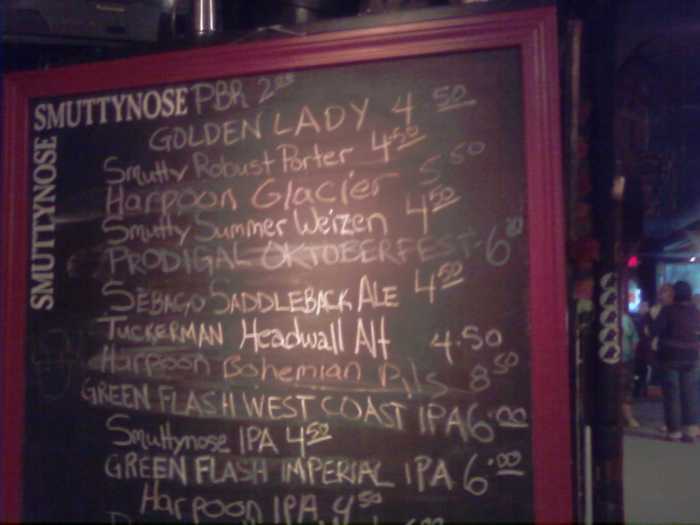 SMUTTYNOSE PBR 2.00
SMUTTYNOSE
GOLDEN LADY 4.50
Smutty Robust Porter 4.50
Harpoon Glacier 5.50
Smutty Summer Weizen 4.50
PRODIGAL OKTOBERFEST - 6.00
SEBAGO SADDLEBACK ALE 4.50
TUCKERMAN Headwall Alt 4.50
Harpoon Bohemian Pils 8.50
GREEN FLASH WEST COAST IPA 6.00
Smuttynose IPA 4.50
GREEN FLASH IMPERIAL IPA 6.00
Harpoon IPA 4.50